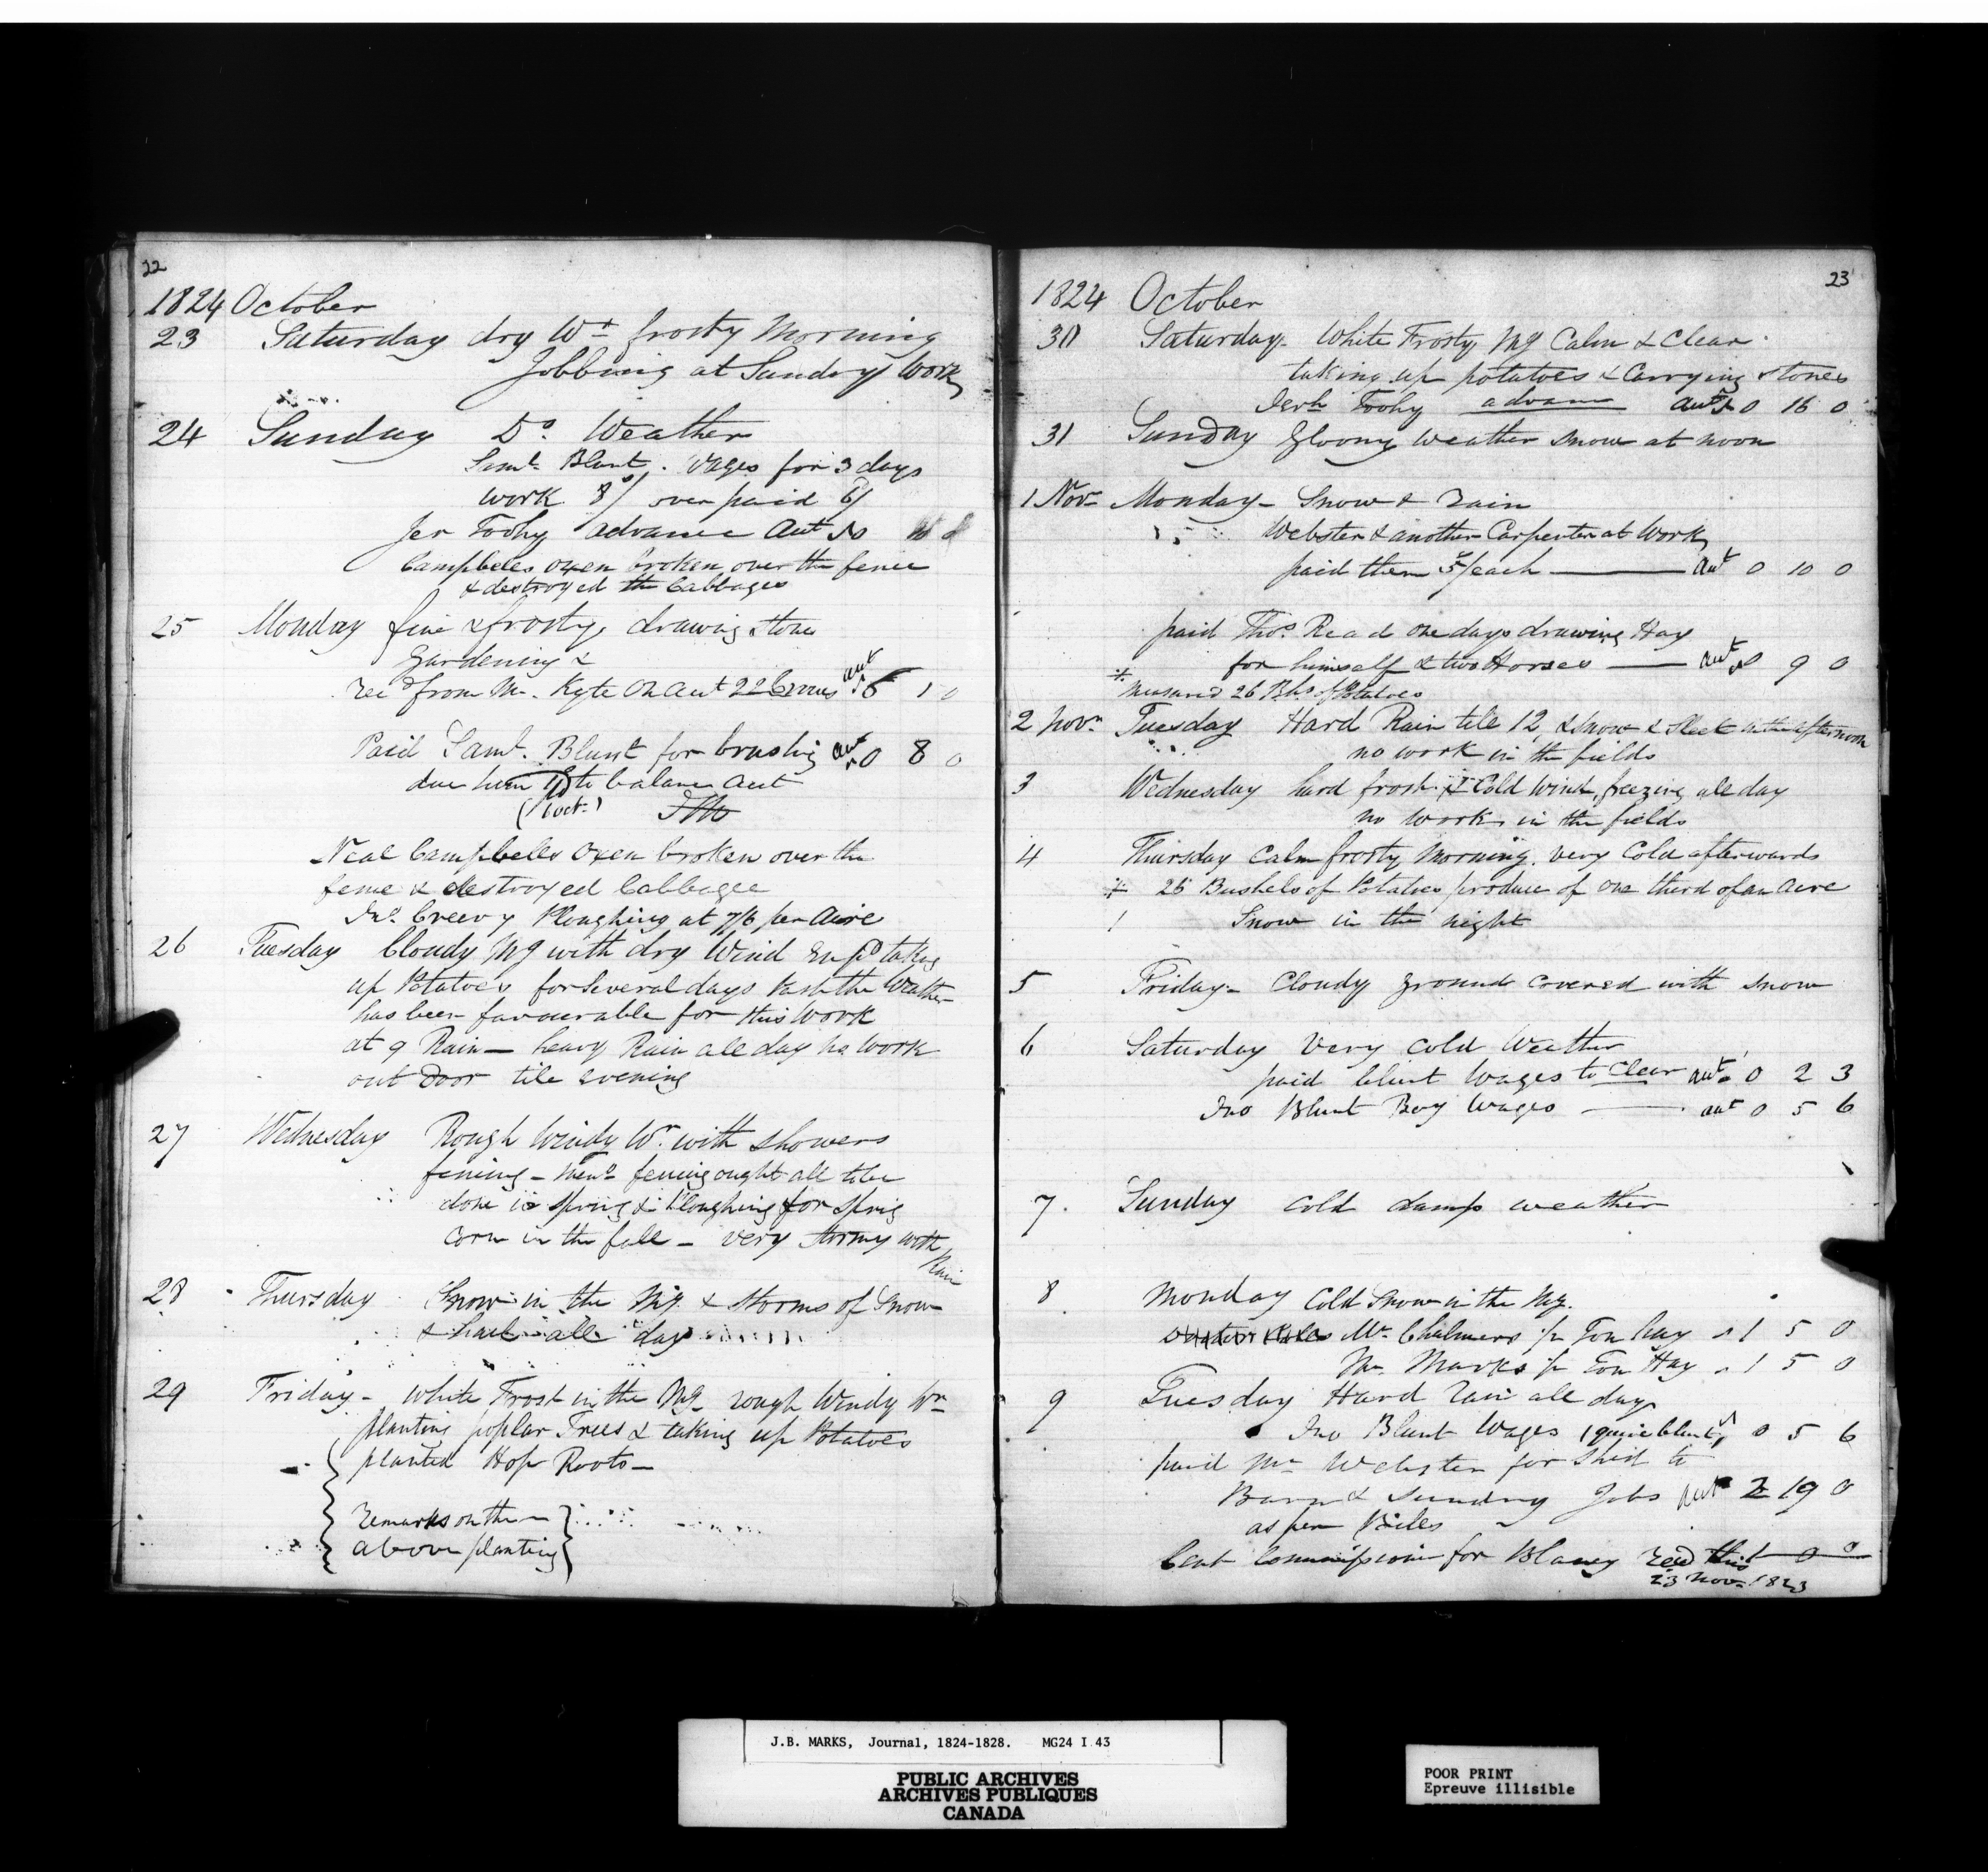 22
1824 October
23 Saturday dry Wr frosty Morning
Jobbing at Sundry Work
24 Sunday Do Weather
Saml. Blunt. Wages for 3 days
work 8/ over paid 6/
Jer Toohy advance aut
Campbeles oxen broken over the fence
& destroyed the Cabbages
25 Monday fine & frosty, drawing stones
Gardening &
recd from Mr. Kyte on aut 22 Crowns aut 5 1 0
Paid Saml. Blunt for brushing aut 0 8 0
due him to balance aut
(1 oct.)
Neal Campbells Oxen broken over the
fence & destroyed Cabbages
Jno. Creevy Ploughing at 7/6 per Acre
26 Tuesday Cloudy Mg with dry Wind Empd taking
up Potatoes for several days past the Weather
has been favourable for this Work
at 9 Rain — heavy Rain all day no work
out Door till evening
27 Wednesday Rough Windy Wr. with showers
fencing — Memo fencing ought all to be
done in spring & Ploughing for spring
Corn in the fall — very stormy with
Rain
28 Thursday Snow in the Mg. & storms of Snow
& hail all day
29 Friday — White Frost in the Mg rough Windy Wr
planting poplar Trees & taking up Potatoes
planted Hop Roots —
remarks on the
above planting
23
1824 October
30 Saturday — White Frosty Mg Calm & Clear
taking up potatoes & Carrying stones
Jerh Toohy advance aut 0 16 0
31 Sunday Gloomy Weather snow at noon
1 Novr Monday — Snow & rain
Webster & another Carpenter at Work
paid them 5/ each — aut 0 10 0
paid Thos. Read one days drawing Hay
for himself & two Horses — aut 0 9 0
* Measured 26 Bhs of Potatoes
2 Novr Tuesday Hard Rain till 12, & snow & sleet in the afternoon
no work in the fields
3 Wednesday hard frost & Cold Wind, freezing all day
no work in the fields
4 Thursday Calm frosty Morning. very Cold afterwards
* 26 Bushels of Potatoes produce of one third of an acre
Snow in the night
5 Friday — Cloudy ground covered with snow
6 Saturday Very Cold Weather
paid blunt Wages to Clear aut 0 2 3
Jno Blunt Boy Wages — aut 0 5 6
7. Sunday Cold damp weather
8 Monday Cold Snow in the Mg.
Mr. Chalmers pr Ton hay 1 5 0
Mr Marks pr Ton Hay 1 5 0
9 Tuesday Hard rain all day
Jno Blunt Wages 0 5 6
paid Mr Webster for Shed to
Barn & sundry Jobs aut 2 19 0
as per Bill
Cent Commission for Blaney recd this 1 0 0
23 Nov. 1823
J.B. MARKS, Journal, 1824-1828. MG24 I 43
PUBLIC ARCHIVES
ARCHIVES PUBLIQUES
CANADA
POOR PRINT
Epreuve illisible